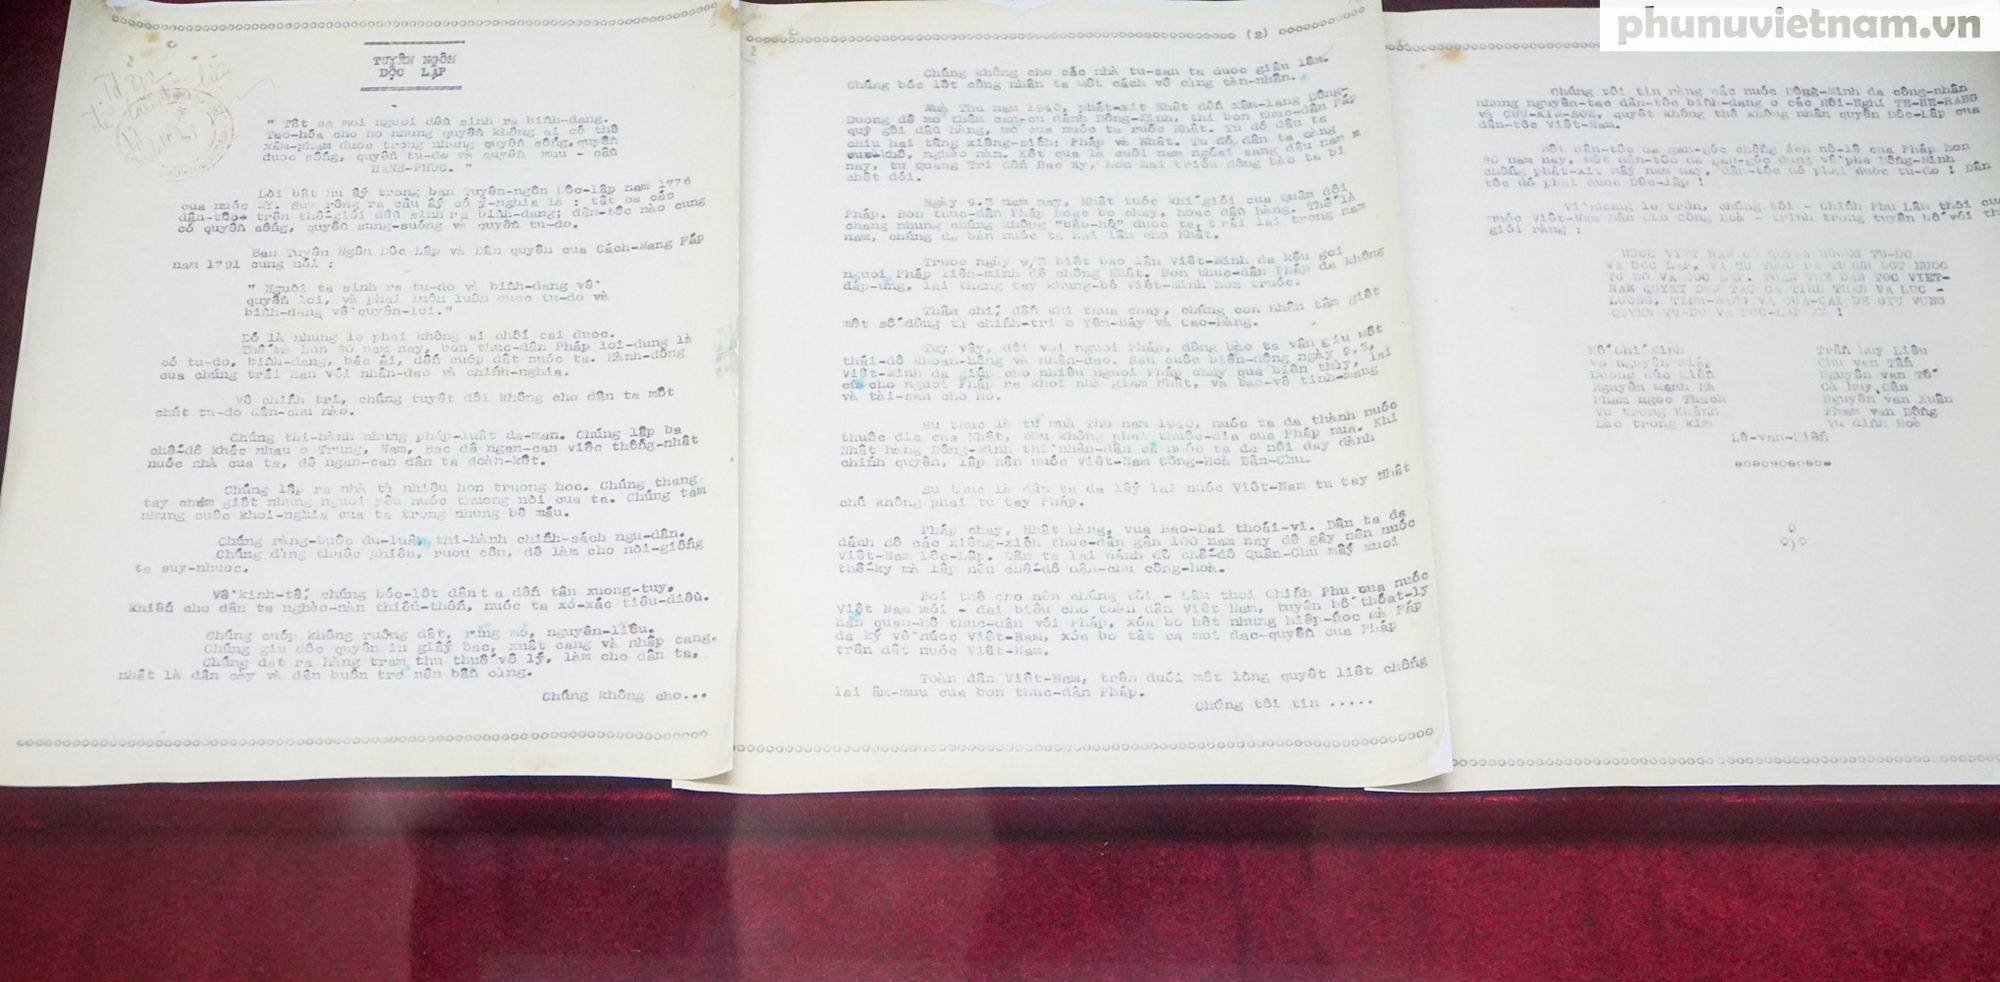 phunuvietnam.vn
TUYÊN NGÔN
DỘC LẬP
" Tất ca moi nguoi dều sinh ra bình-dang.
Tao-hóa cho ho nhung quyền không ai có thể
xâm-pham duoc trong nhung quyền sống, quyền
duoc sống, quyền tu-do và quyền muu - cầu
HANH-PHUC. "
Lời bất hu ấy trong ban Tuyên-ngôn Dôc-lâp nam 1776
cua nuóc MỸ. Suy rông ra câu ấy có ý-nghia là : tất ca các
dân-tôc trên thế-giói dều sinh ra bình-dang; dân-tôc nào cung
có quyền sống, quyền sung-suóng và quyền tu-do.
Ban Tuyên Ngôn Dôc Lâp và Dân quyền cua Cách-Mang Páp
nam 1791 cung nói :
" Nguòi ta sinh ra tu-do và bình-dang về
quyền loi, và phai luôn luôn duoc tu-do và
bình-dang về quyền-loi."
Dó là nhung le phai không ai chối cai duoc.
Thế mà hon 80 nam nay, bon thuc-dân Pháp loi-dung lá
có tu-do, bình-dang, bác ái, dến cuóp dất nuóc ta. Hành-dông
cua chúng trái han vói nhân-dao và chính-nghia.
Về chính trị, chúng tuyêt dối không cho dân ta môt
chút tu-do dân-chu nào.
Chúng thi-hành nhung pháp-luât da-man. Chúng lâp ba
chế-dô khác nhau o Trung, Nam, Bac dê ngan-can viêc thống-nhất
nuóc nhà cua ta, dê ngan-can dân ta doàn-kết.
Chúng lâp ra nhà tù nhiều hon truong hoc. Chúng thang
tay chém giết nhung nguoi yêu nuóc thuong nòi cua ta. Chúng tám
nhung cuôc khoi-nghia cua ta trong nhung bê máu.
Chúng ràng-buôc du-luân, thi-hành chính-sách ngu-dân.
Chúng dùng thuốc phiên, ruou cồn, dê làm cho nòi-giống
ta suy-nhuoc.
Về kinh-tế, chúng bóc-lôt dân ta dến tân xuong-tuy,
khiến cho dân ta nghèo-nàn thiếu-thốn, nuóc ta xó-xác tiêu-diều.
Chúng cuóp không ruông dất, rùng mo, nguyên-liêu.
Chúng giu dôc quyền in giấy bac, xuất cang và nhâp cang.
Chúng dat ra hàng tram thu thuế vô lý, làm cho dân ta,
nhất là dân cày và dân buôn tro nên bần cùng.
Chúng không cho...
(2)
Chúng không cho các nhà tu-san ta duoc giàu lên.
Chúng bóc lôt công nhân ta môt cách vô cùng tàn-nhân.
Muà Thu nam 1940, phát-xít Nhât dến xâm-lang Dông-
Duong dê mo thêm can-cu dánh Dồng-Minh, thì bon thuc-dân Páp
quỳ gối dầu hàng, mo cua nuóc ta ruóc Nhât. Tu dó dân ta
chịu hai tầng xiềng-xích: Pháp và Nhât. Tu dó, dân ta càng
cuc-khô, nghèo nàn. Kết qua là cuối nam ngoái sang dầu nam
nay, tu Quang Trị dến Bac Ky, hon hai triêu dồng bào ta bi
chết dói.
Ngày 9.3 nam nay, Nhât tuóc khí giói cua Quân dôi
Pháp. Bon thuc-dân Pháp hoac bo chay, hoac dầu hàng. Thế là
chang nhung chúng không "bao-hô" duoc ta, trái lai trong nam
nam, chúng da bán nuóc ta hai lần cho Nhât.
Truoc ngày 9/3 biết bao lần Viêt-Minh da kêu goi
nguoi Pháp liên-minh dê chống Nhât. Bon thuc-dân Pháp da không
dáp-ung, lai thang tay khung-bố Viêt-Minh hon truóc.
Thâm chí, dến khi thua chay, chúng con nhân tâm giết
môt số dông tù chính-trị o Yên-Báy và Cao-Bàng.
Tuy vây, dối voi nguoi Pháp, dồng bào ta vân giu môt
thái-dô khoan-hồng và nhân-dao. Sau cuôc biến-dông ngày 9.3,
Viêt-Minh da giúp cho nhiều nguoi Pháp chay qua biên thùy, lai
cúu cho nguoi Pháp ra khoi nhà giam Nhât, và bao-vê tính-mang
và tài-san cho ho.
Su thuc là tu muà Thu nam 1940, nuóc ta da thành nuóc
thuôc dia cua Nhât, chu không phai thuôc-dia cua Pháp nua. Khi
Nhât hàng Dồng-Minh thì nhân-dân ca nuóc ta da nôi dây dành
chính quyền, lâp nên nuóc Viêt-Nam Công-Hoà Dân-Chu.
Su thuc là dân ta da lấy lai nuóc Viêt-Nam tu tay Nhât
chú không phai tu tay Pháp.
Pháp chay, Nhât hàng, vua Bao-Dai thoái-vị. Dân ta da
dánh dô các xiềng-xích thuc-dân gần 100 nam nay dê gây nên nuóc
Viêt-Nam Dôc-Lâp. Dân ta lai dánh dô chế-dô Quân-Chu mấy muoi
thế-ky mà lâp nên chế-dô dân-chu công-hoà.
Boi thế cho nên chúng tôi - Lâm thoi Chính Phu cua nuóc
Viêt Nam mói - dai biêu cho toàn dân Viêt Nam, tuyên bố thoát-ly
han quan-hê thuc-dân vói Pháp, xóa bo hết nhung hiêp-uóc mà Páp
da ký về nuóc Viêt-Nam, xóa bo tất ca moi dac-quyền cua Pháp
trên dất nuóc Viêt-Nam.
Toàn dân Viêt-Nam, trên duói môt lòng quyết liêt chống
lai âm-muu cua bon thuc-dân Pháp.
Chúng tôi tin .....
Chúng tôi tin ràng các nuóc Dồng-Minh da công-nhân
nhung nguyên-tac dân-tôc bình-dang o các Hôi-Nghị TE-HE-RANG
và CUU-KIM-SON, quyết không thê không nhân quyền Dôc-Lâp cua
dân-tôc Viêt-Nam.
Môt dân-tôc da gan-góc chống ách nô-lê cua Pháp hon
80 nam nay, môt dân-tôc da gan-góc dung về phe Dồng-Minh
chống phát-xít mấy nam nay, dân-tôc dó phai duoc tu-do ! Dân
tôc dó phai duoc Dôc-lâp !
Vì nhung le trên, chúng tôi - Chính Phu Lâm thoi cua
nuóc Viêt-Nam Dân Chu Công Hoà - trinh trong tuyên bố vói thế
giói ràng :
NUOC VIET NAM CO QUYEN HUONG TU-DO
VA DOC LAP, VA SU THUC DA THANH MOT NUOC
TU DO VA DOC LAP. TOAN THE DAN TOC VIET-
NAM QUYET DEP TAT CA TINH THAN VA LUC -
LUONG, TINH-MANG VA CUA-CAI DE GIU VUNG
QUYEN TU-DO VA DOC-LAP AY !
Hồ Chí Minh Trần huy Liêu
Võ nguyên Giáp Chu van Tấn
Duong duc Hiền Nguyên van Tố
Nguyên manh Hà Cù huy Cân
Pham ngoc Thach Nguyên van Xuân
Vu trong Khánh Pham van Dồng
Dào trong kim Vu dình Hoè
Lê-van-Hiến